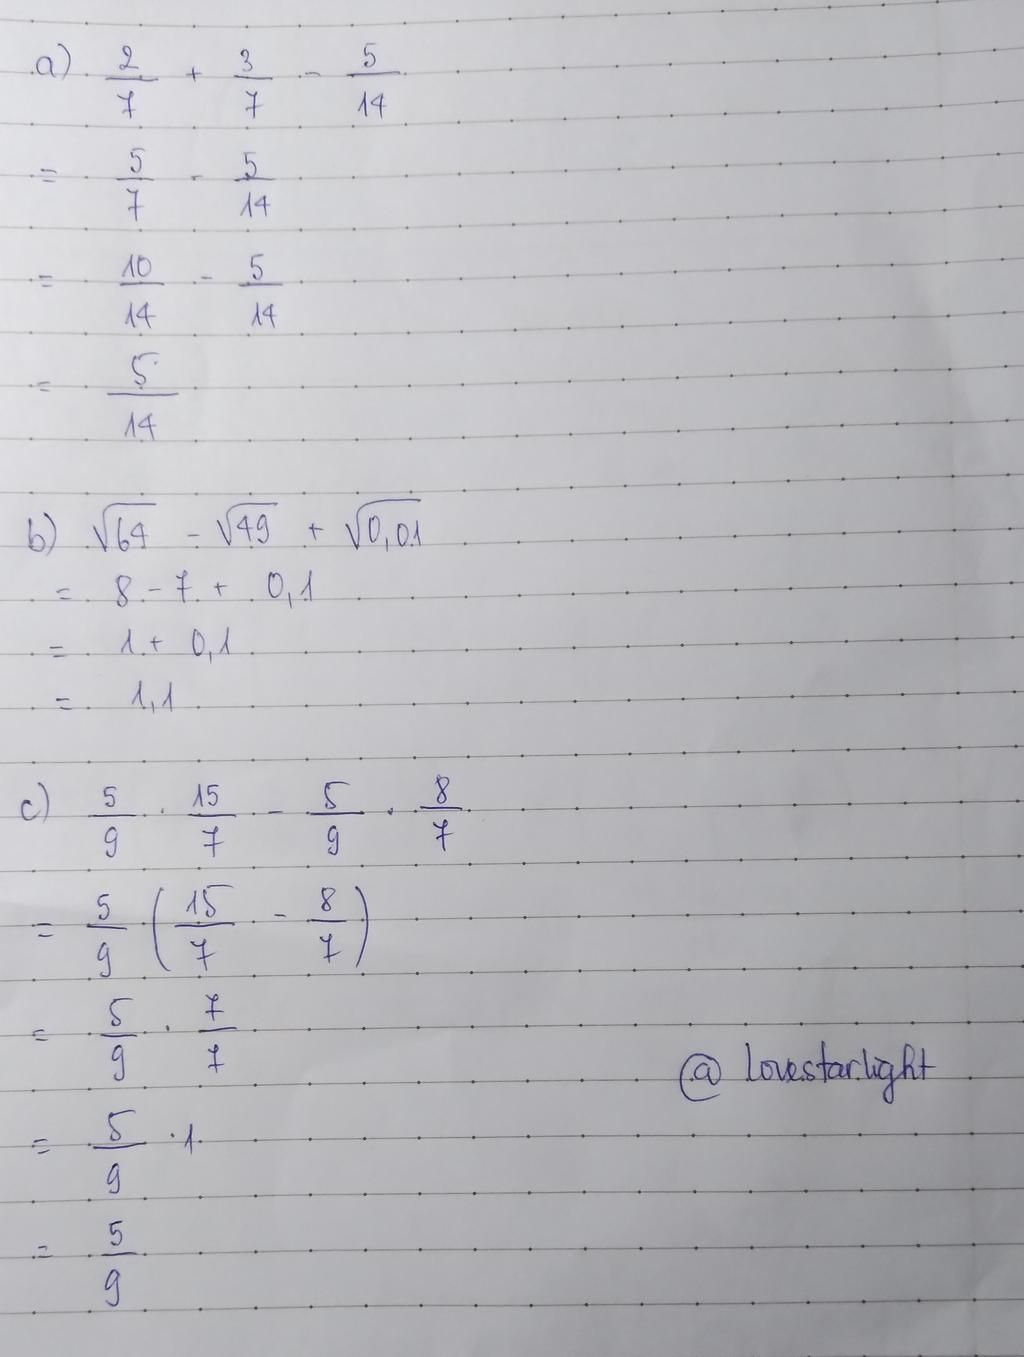 a) 2/7 + 3/7 - 5/14
= 5/7 - 5/14
= 10/14 - 5/14
= 5/14
b) √64 - √49 + √0,01
= 8 - 7 + 0,1
= 1 + 0,1
= 1,1
c) 5/9 . 15/7 - 5/9 . 8/7
= 5/9 (15/7 - 8/7)
= 5/9 . 7/7
@ lovestarlight
= 5/9 . 1
= 5/9